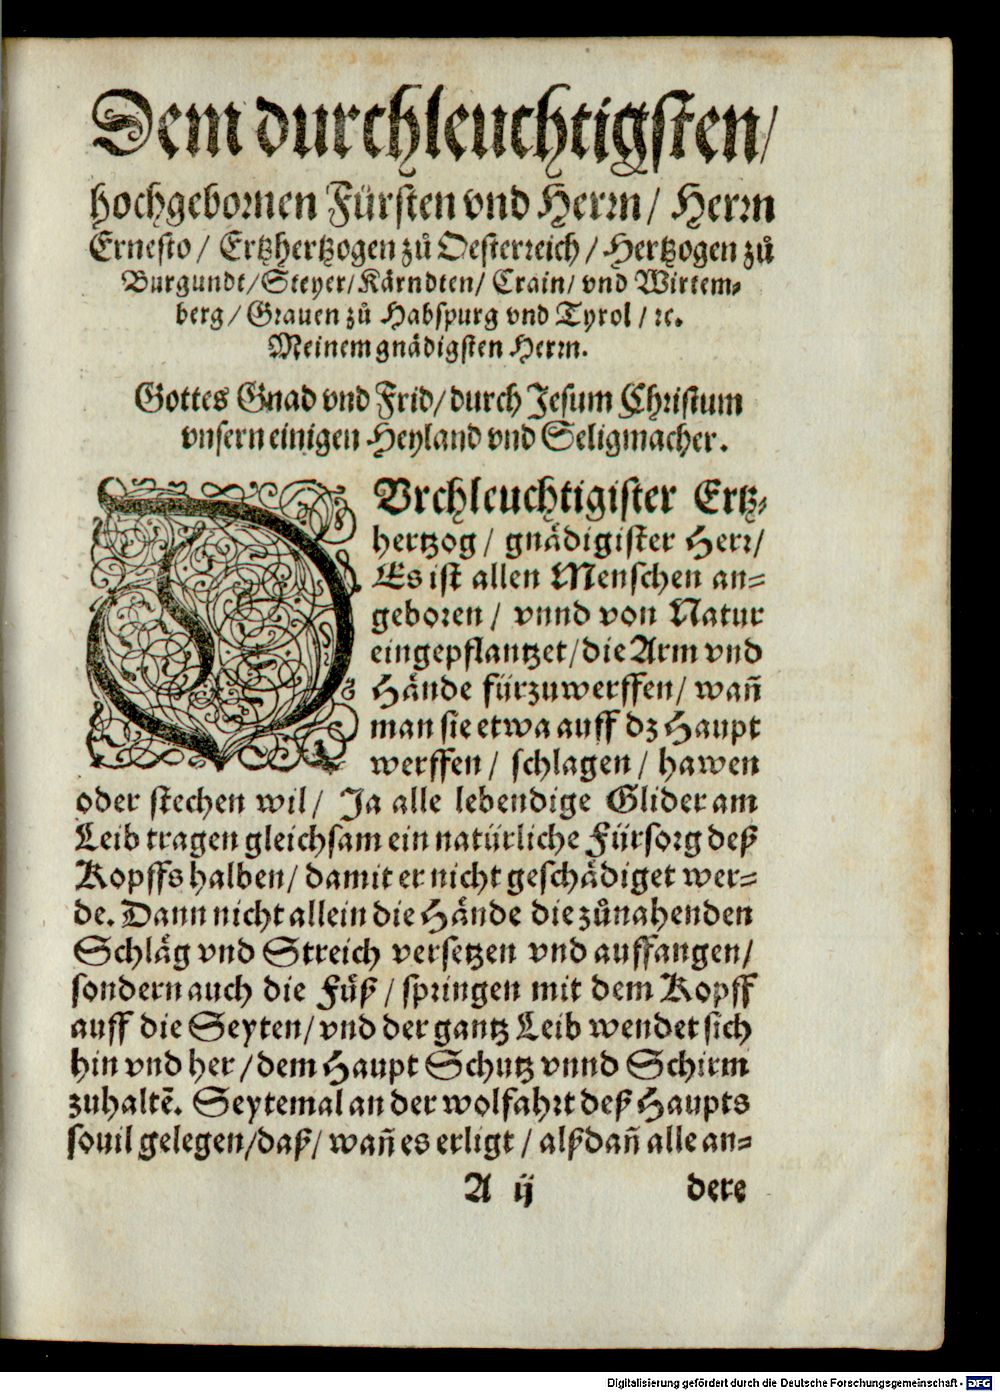 Dem durchleuchtigsten/
hochgebornen Fürsten vnd Herrn/ Herrn
Ernesto/ Ertzhertzogen zů Oesterreich/ Hertzogen zů
Burgundt/ Steyer/ Kärndten/ Crain/ vnd Wirtem-
berg/ Grauen zů Habspurg vnd Tyrol/ ꝛc.
Meinem gnädigsten Herrn.
Gottes Gnad vnd Frid/ durch Jesum Christum
vnsern einigen Heyland vnd Seligmacher.
DVrchleuchtigister Ertz-
hertzog/ gnädigister Herr/
Es ist allen Menschen an-
geboren/ vnnd von Natur
eingepflantzet/ die Arm vnd
Hände fürzuwerffen/ wañ
man sie etwa auff dz Haupt
werffen/ schlagen/ hawen
oder stechen wil/ Ja alle lebendige Glider am
Leib tragen gleichsam ein natürliche Fürsorg deß
Kopffs halben/ damit er nicht geschädiget wer-
de. Dann nicht allein die Hände die zůnahenden
Schläg vnd Streich versetzen vnd auffangen/
sondern auch die Füß/ springen mit dem Kopff
auff die Seyten/ vnd der gantz Leib wendet sich
hin vnd her/ dem Haupt Schutz vnnd Schirm
zuhaltẽ. Seytemal an der wolfahrt deß Haupts
souil gelegen/ daß/ wañ es erligt/ alßdañ alle an-
A ij dere
Digitalisierung gefördert durch die Deutsche Forschungsgemeinschaft - DFG